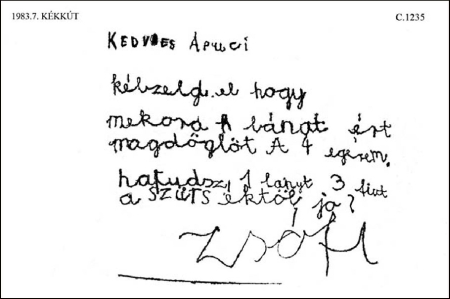 1983.7. KÉKKÚT
C.1235
KEDVES ÁPUCI
kébzeld el hogy
mekora A bánat ért
magdőglöt A 4 egérem.
hatudsz, 1 lányt 3 fiut
a szűts éktől jó?
ZSÓFI